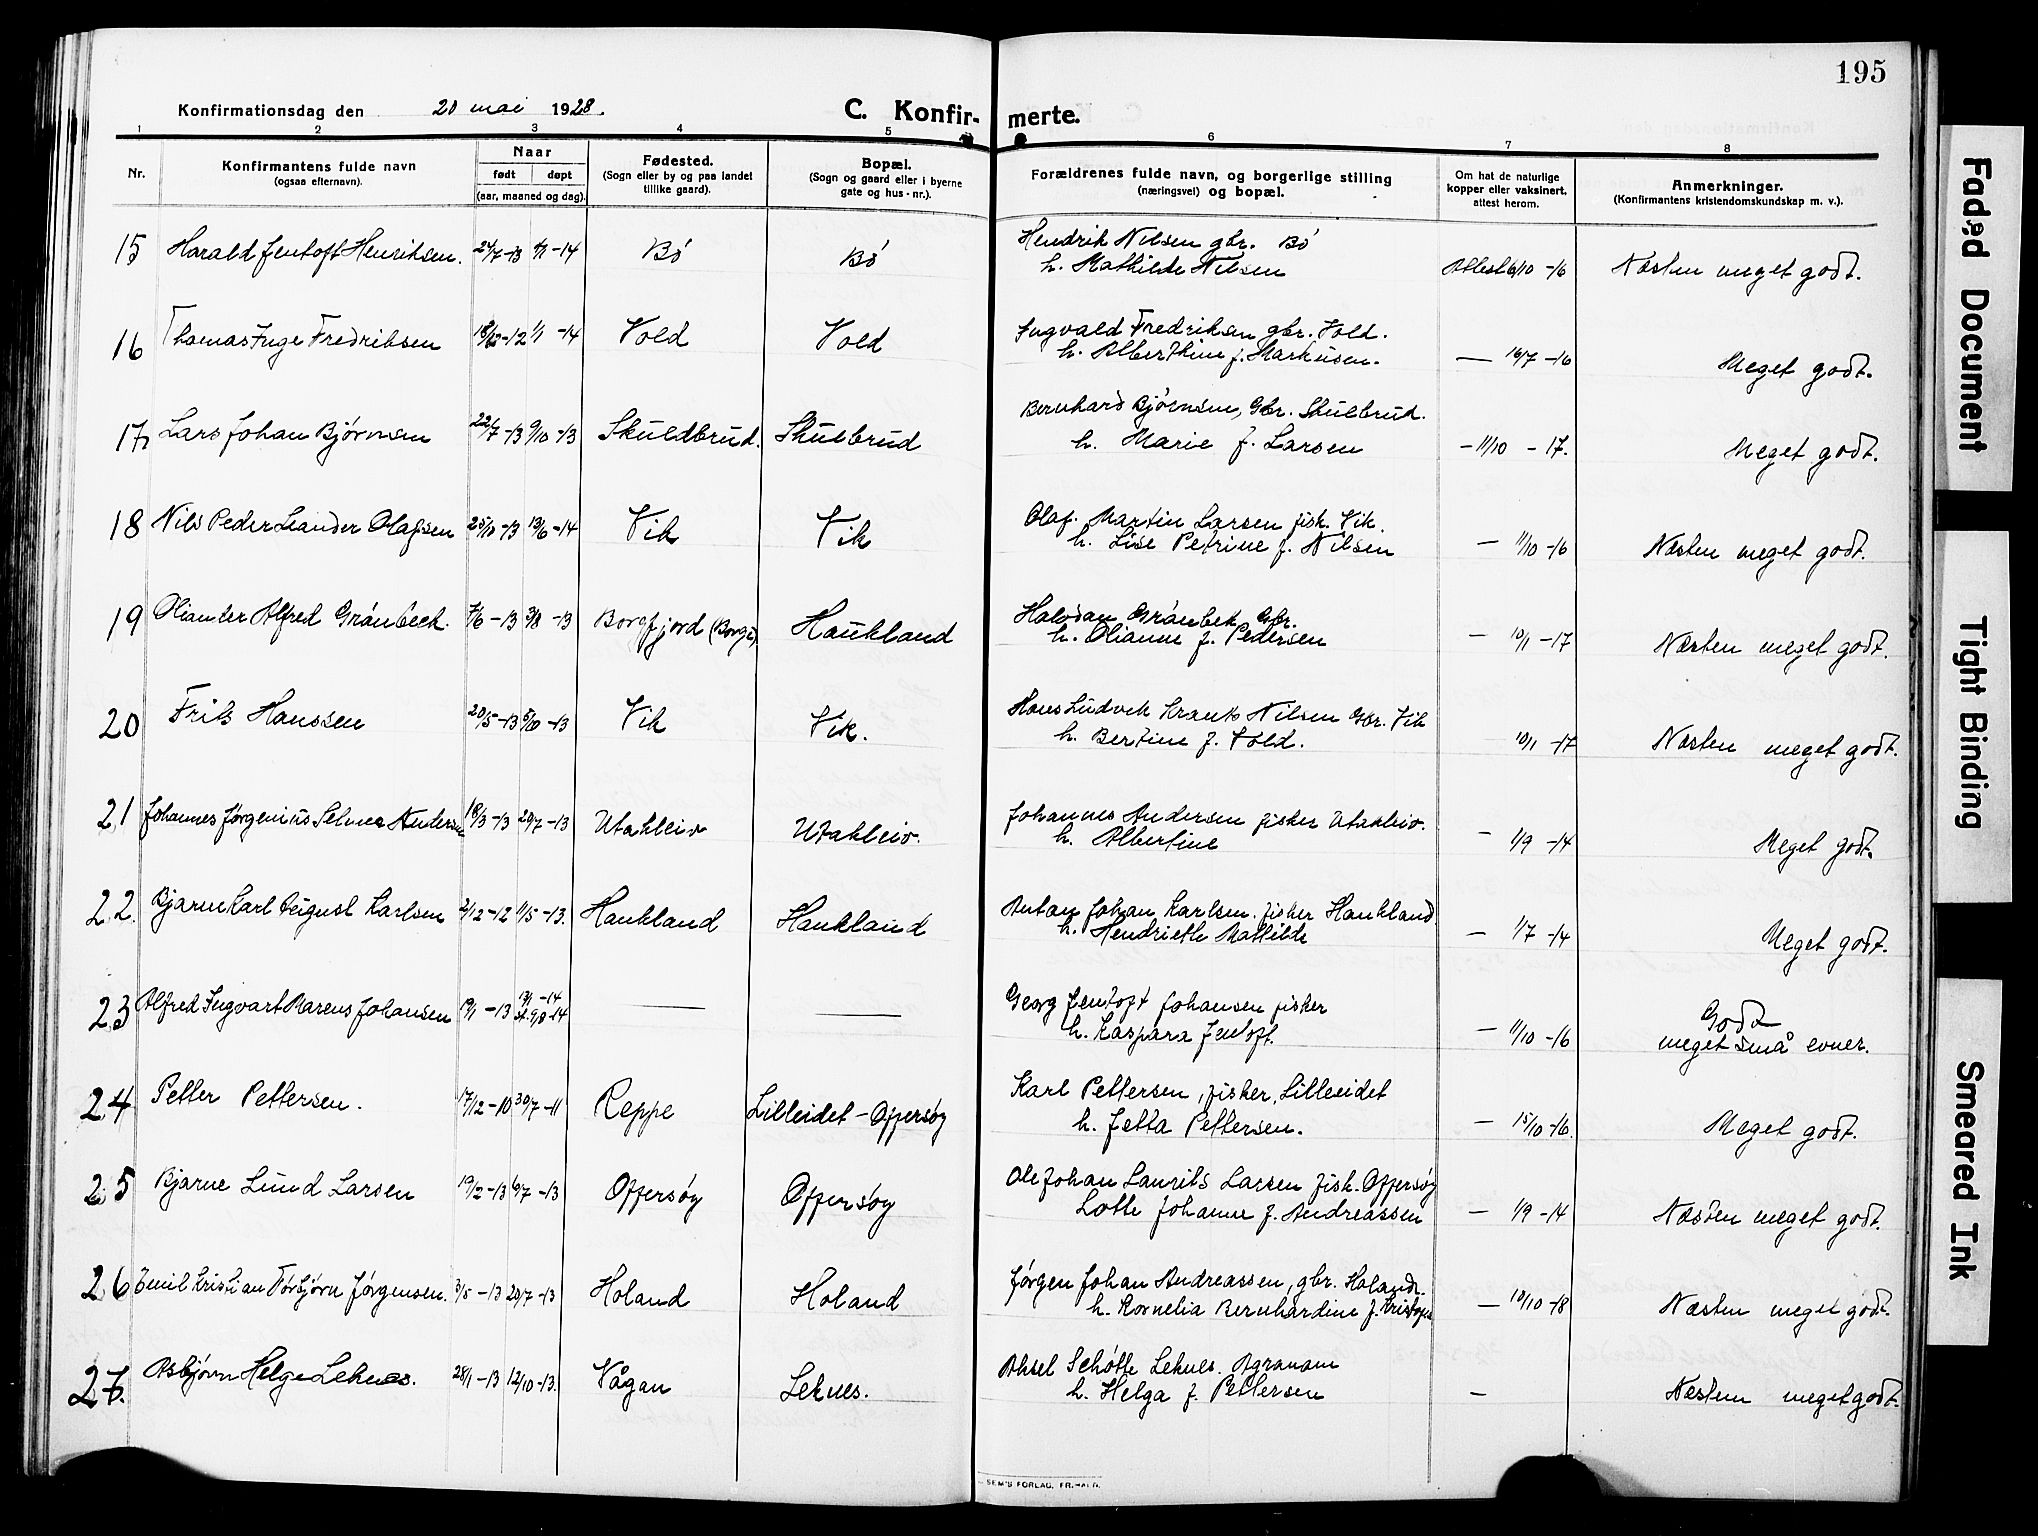 195
Konfirmationsdag den 20 mai 1928.
C. Konfir- merte.
1 2 3 4 5 6 7 8
Nr.
Konfirmantens fulde navn
(ogsaa efternavn).
Naar
født døpt
(aar, maaned og dag).
Fødested.
(Sogn eller by og paa landet
tillike gaard).
Bopæl.
(Sogn og gaard eller i byerne
gate og hus-nr.).
Forældrenes fulde navn, og borgerlige stilling
(næringsvei) og bopæl.
Om hat de naturlige
kopper eller vaksinert,
attest herom.
Anmerkninger.
(Konfirmantens kristendomskundskap m. v.).
15 Harald Jentoft Henriksen. 24/7-13 4/1-14 Bö Bö
Hendrik Nilsen gbr. Bö
h. Mathilde Nilsen Attest 6/10 -16 Næsten meget godt.
16 Thomas Inge Fredriksen 18/12-12 1/1 -14 Vold Vold
Ingvald Fredriksen gbr. Vold.
h. Alberthine f. Markusen. — 16/7 -16 Meget godt.
17 Lars Johan Bjørnsen 22/7-13 9/10-13 Skuldbrud. Skulbrud
Bernhard Bjørnsen, Gbr. Skulbrud.
h. Marie f. Larsen - 11/10 - 17. Meget godt.
18 Nils Peder Leander Olafsen 25/10-13 13/6-14 Vik Vik
Olaf Martin Larsen fisk. Vik.
h. Lise Petrine f. Nilsen — 11/10 -16 Næsten meget godt.
19 Oliander Alfred Grönbeck. 7/6-13 3/8-13 Borgfjord (Borge) Haukland
Halvdan Grönbek Gbr.
h. Olianne f. Pedersen — 10/1 -17 Næsten meget godt.
20 Frits Hanssen 20/5-13 5/10-13 Vik Vik.
Hans Ludvik Krants Nilsen Gbr. Vik
h. Bertine f. Vold. 10/1 -17 Næsten meget godt.
21 Johannes Jørgenius Selmer Andersen 18/3-13 20/7-13 Utakleiv Utakleiv.
Johannes Andersen fisker Utakleiv.
h. Albertine — 1/9 -14 Meget godt.
22. Bjarne Karl August Karlsen 2/12-12 1/5-13. Haukland Haukland
Anton Johan Karlsen. fisker Haukland
h. Hendriette Mathilde — 1/7 -14 Meget godt.
23 Alfred Ingvart Marens Johansen 19/1-13 13/1-14
st. 9/8-14 — —
Georg Jentoft Johansen fisker
h. Kaspara Jentoft. — 11/10 -16 Godt
meget små evner.
24 Petter Pettersen. 17/12-10 30/7-11 Reppe Lilleidet - Offersøy
Karl Pettersen, fisker, Lilleeidet
h. Jetta Pettersen. — 15/10 -16. Meget godt.
25 Bjarne Lund Larsen 19/2-13 6/7-13 Offersøy Offersøy
Ole Johan Laurits Larsen fisk. Offersøy
Lotte Johanne f. Andreassen — 1/9 -14 Næsten meget godt.
26 Emil Kristian Torbjörn Jørgensen. 3/5-13 20/7-13 Holand Holand
Jørgen Johan Andreassen, gbr. Holand.
h. Kornelia Bernhardine f. — 10/10 -18 Næsten meget godt.
27. Asbjørn Helge Leknes. 28/1-13 12/10-13. Vågan Leknes.
Aksel Schøtte Leknes. Agronom
h. Helga f. Pettersen — Næsten meget godt.
SEM'S FORLAG, FR.HALD.
Faded Document
Tight Binding
Smeared Ink